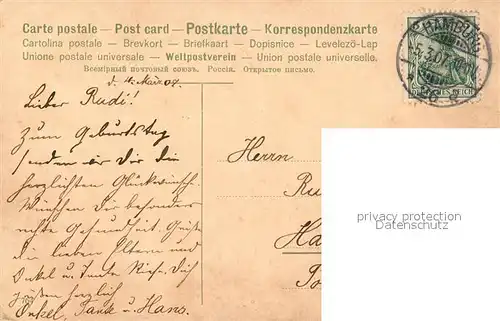 Carte postale – Post card – Postkarte – Korrespondenzkarte
Cartolina postale – Brevkort – Briefkaart – Dopisnice – Levelező-Lap
Unione postale universale – Weltpostverein – Union postale universelle.
Всемірный почтовый союзъ. Россія. Открытое письмо.
HAMBURG
5.3.07
DEUTSCHES REICH
Lieber Rudi!
Zum Geburtstag
senden wir Dir die
herzlichsten Glückwünsche.
Wünschen Dir besonders
rechte Gesundheit. Grüße
die lieben Eltern und
Onkel u. Tante Dich
grüßen herzlich
Onkel, Tante u. Hans.
Herrn
Ru
Ha
privacy protection
Datenschutz